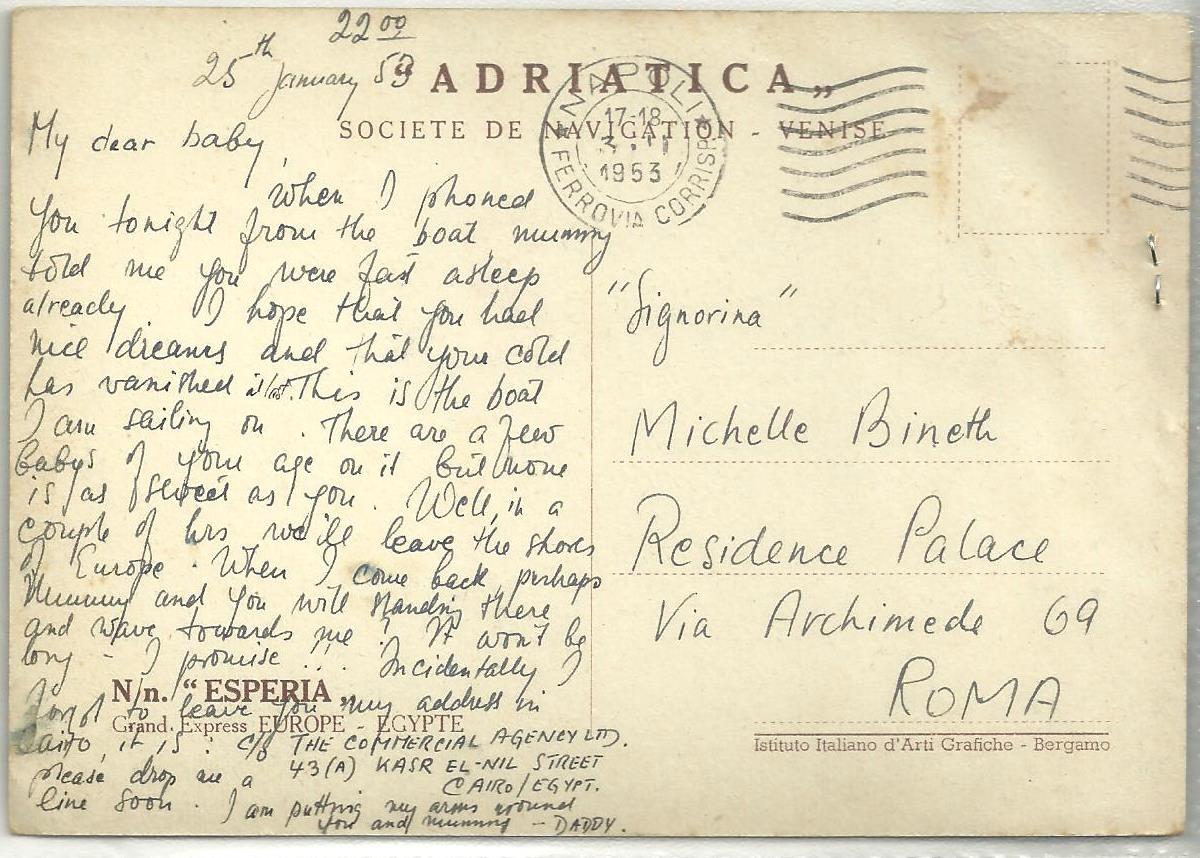 22 00
25th January 53
"ADRIATICA"
SOCIETE DE NAVIGATION - VENISE
NAPOLI
17-18
3. II
1953
FERROVIA CORRISP.
My dear baby,
When I phoned
you tonight from the boat mummy
told me you were fast asleep
already. I hope that you had
nice dreams and that your cold
has vanished at last. This is the boat
I am sailing on. There are a few
babys of your age on it but none
is as sweet as you. Well, in a
couple of hrs we'll leave the shores
of Europe. When I come back, perhaps
Mummy and you will standing there
and wave towards me! It won't be
long - I promise ... Incidentally I
forgot to leave you my address in
Cairo, it is: c/o THE COMMERCIAL AGENCY LTD.
43(A) KASR EL-NIL STREET
CAIRO/EGYPT.
please drop me a
line soon. I am putting my arms around
you and mummy - DADDY.
N/n. "ESPERIA"
Grand Express EUROPE - EGYPTE
"Signorina"
Michelle Bineth
Residence Palace
Via Archimede 69
ROMA
Istituto Italiano d'Arti Grafiche - Bergamo